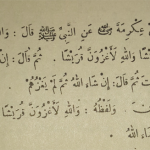 عِكْرِمَةَ عَنِ النَّبِيِّ ﷺ قَالَ : وَا
وَاللهِ لَأَغْزُوَنَّ قُرَيْشًا . ثُمَّ قَالَ : إِنْ
إِنْ شَاءَ اللهُ ثُمَّ لَمْ يَغْزُهُمْ
وَلَفْظُهُ : وَاللهِ لَأَغْزُوَنَّ قُرَيْشًا
شَاءَ اللهُ